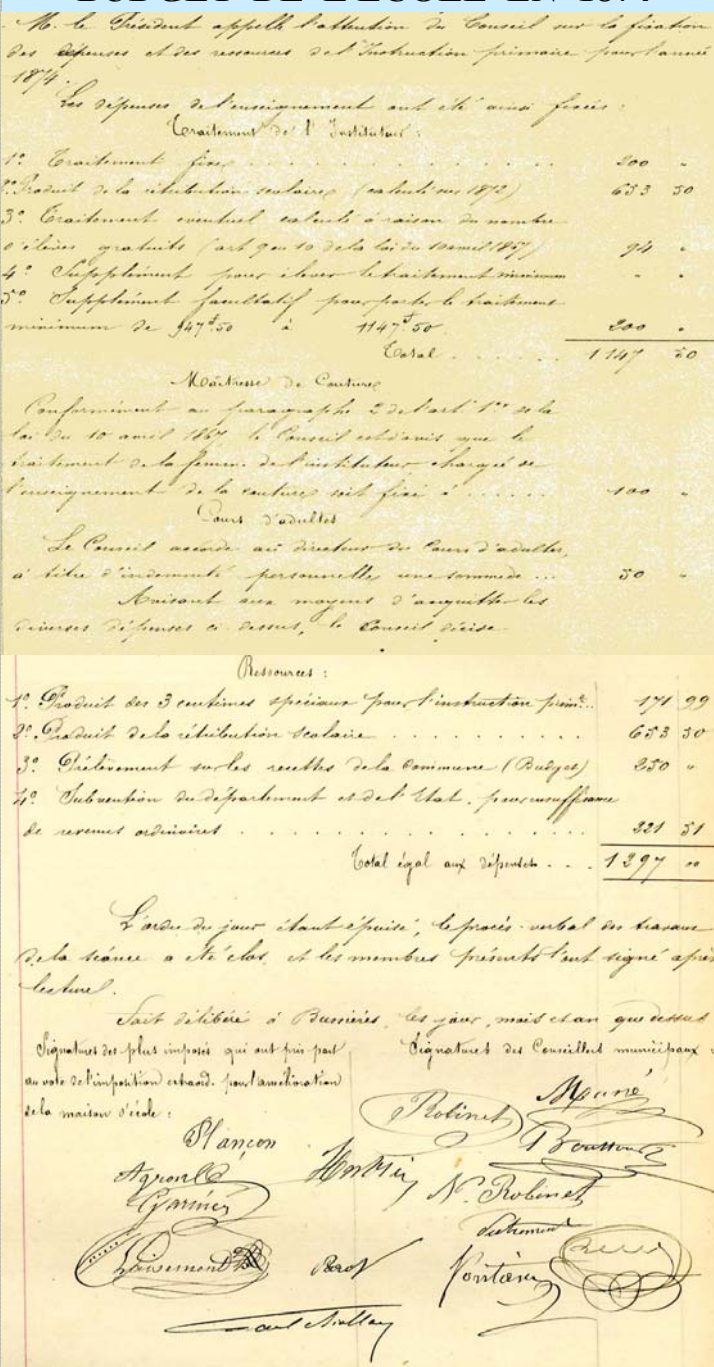 BUDGET DE L'ECOLE EN 1874
M. le Président appelle l'attention du Conseil sur la fixation
des dépenses et des ressources de l'Instruction primaire pour l'année
1874.
Les dépenses de l'enseignement ont été ainsi fixées :
Traitement de l'Instituteur :
1° Traitement fixe . . . . . . . . . . 200 "
2° Produit de la rétribution scolaire (calculé sur 1872) 653 50
3° Traitement éventuel calculé à raison du nombre
d'élèves gratuits (art 9 ou 10 de la loi du 10 avril 1867) 94 "
4° Supplément pour élever le traitement minimum " "
5° Supplément facultatif pour porter le traitement
minimum de 947f.50 à 1147f.50 200 "
Total . . . . . . 1147 50
Maîtresse de Couture
Conformément au paragraphe 2 de l'art 1er de la
loi du 10 avril 1867 le Conseil est d'avis que le
traitement de la femme de l'instituteur chargée de
l'enseignement de la couture soit fixé à . . . . . . 100 "
Cours d'adultes
Le Conseil accorde au directeur du Cours d'adultes,
à titre d'indemnité personnelle, une somme de . . . 50 "
Avisant aux moyens d'acquitter les
diverses dépenses ci dessus, le Conseil décide
Ressources :
1° Produit des 3 centimes spéciaux pour l'instruction prim.re.. 171 99
2° Produit de la rétribution scolaire . . . . . . . . . . 653 50
3° Prélèvement sur les recettes de la Commune (Budget) 250 "
4° Subvention du département et de l'Etat, pour insuffisance
de revenus ordinaires . . . . . . . . . . . . 221 51
Total égal aux dépenses . . . 1297 00
L'ordre du jour étant épuisé, le procès-verbal des travaux
de la séance a été clos, et les membres présents l'ont signé après
lecture.
Fait délibéré à Bussières, les jour, mois et an que dessus
Signatures des plus imposés qui ont pris part Signatures des Conseillers municipaux :
au vote de l'imposition extraord. pour l'amélioration
de la maison d'école :
Robinet
Plançon
N. Robinet
Garnier